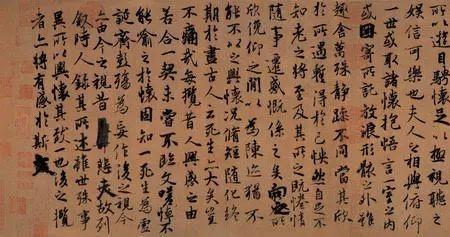 所以遊目騁懷足以極視聽之
娛信可樂也夫人之相與俯仰
一世或取諸懷抱悟言一室之內
或因寄所託放浪形骸之外雖
趣舍萬殊靜躁不同當其欣
於所遇蹔得於己怏然自足不
知老之將至及其所之既惓情
隨事遷感慨係之矣向之所
欣俛仰之閒以為陳迹猶不
能不以之興懷況脩短隨化終
期於盡古人云死生亦大矣豈
不痛哉每攬昔人興感之由
若合一契未嘗不臨文嗟悼不
能喻之於懷固知一死生為虛
誕齊彭殤為妄作後之視今
亦由今之視昔悲夫故列
敘時人錄其所述雖世殊事
異所以興懷其致一也後之攬
者亦將有感於斯文